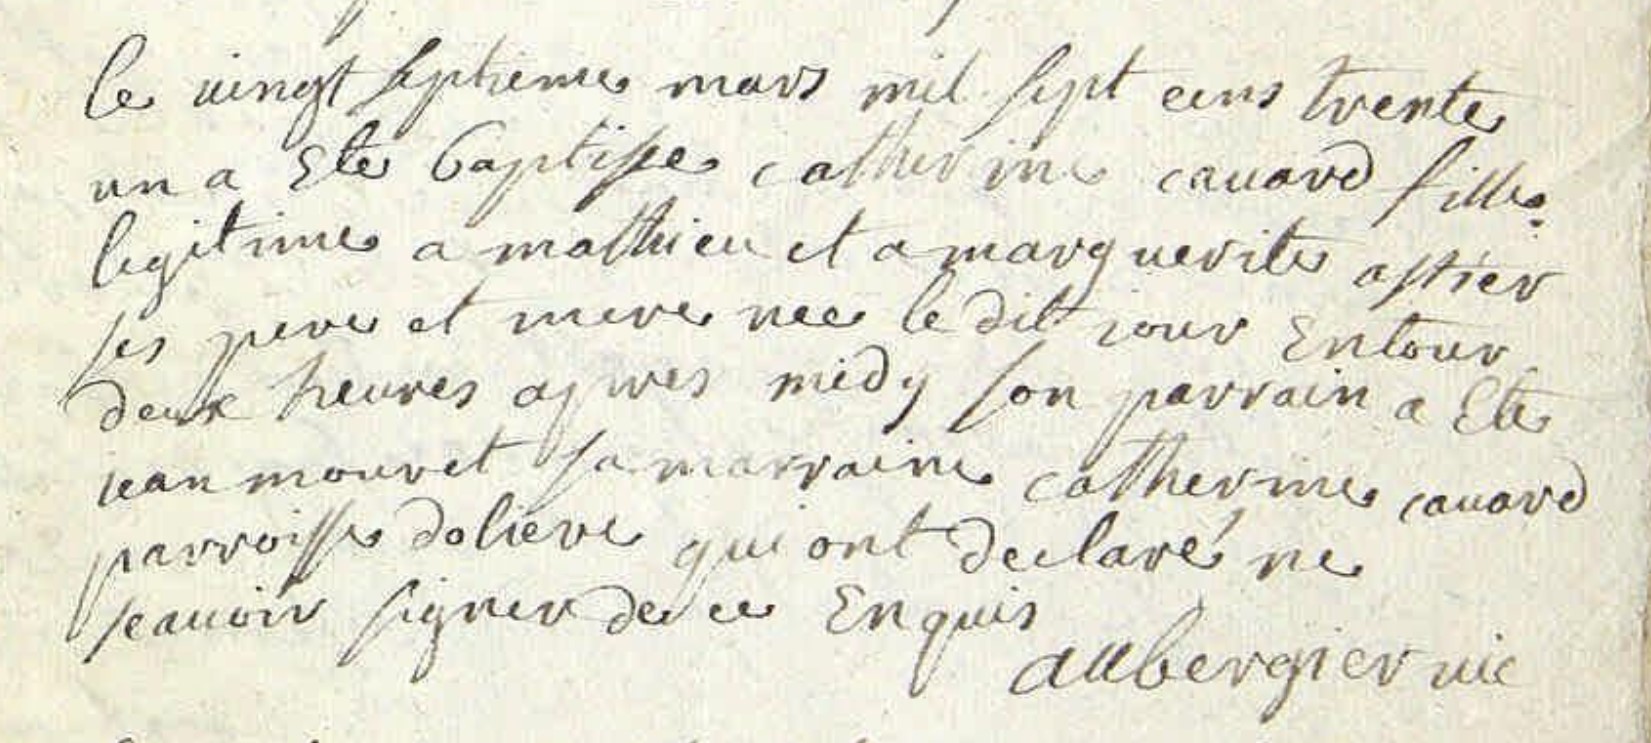 le vingt septieme mars mil sept cens trente
un a Ete baptisee catherine cavard fille
legitime a mathieu et a marguerite astier
ses pere et mere nee le dit jour Entour
deux heures apres midy son parrain a Ete
jean mouret sa marraine catherine cavard
parroisse doliere qui ont declaré ne
scavoir signer de ce Enquis
aubergier vic